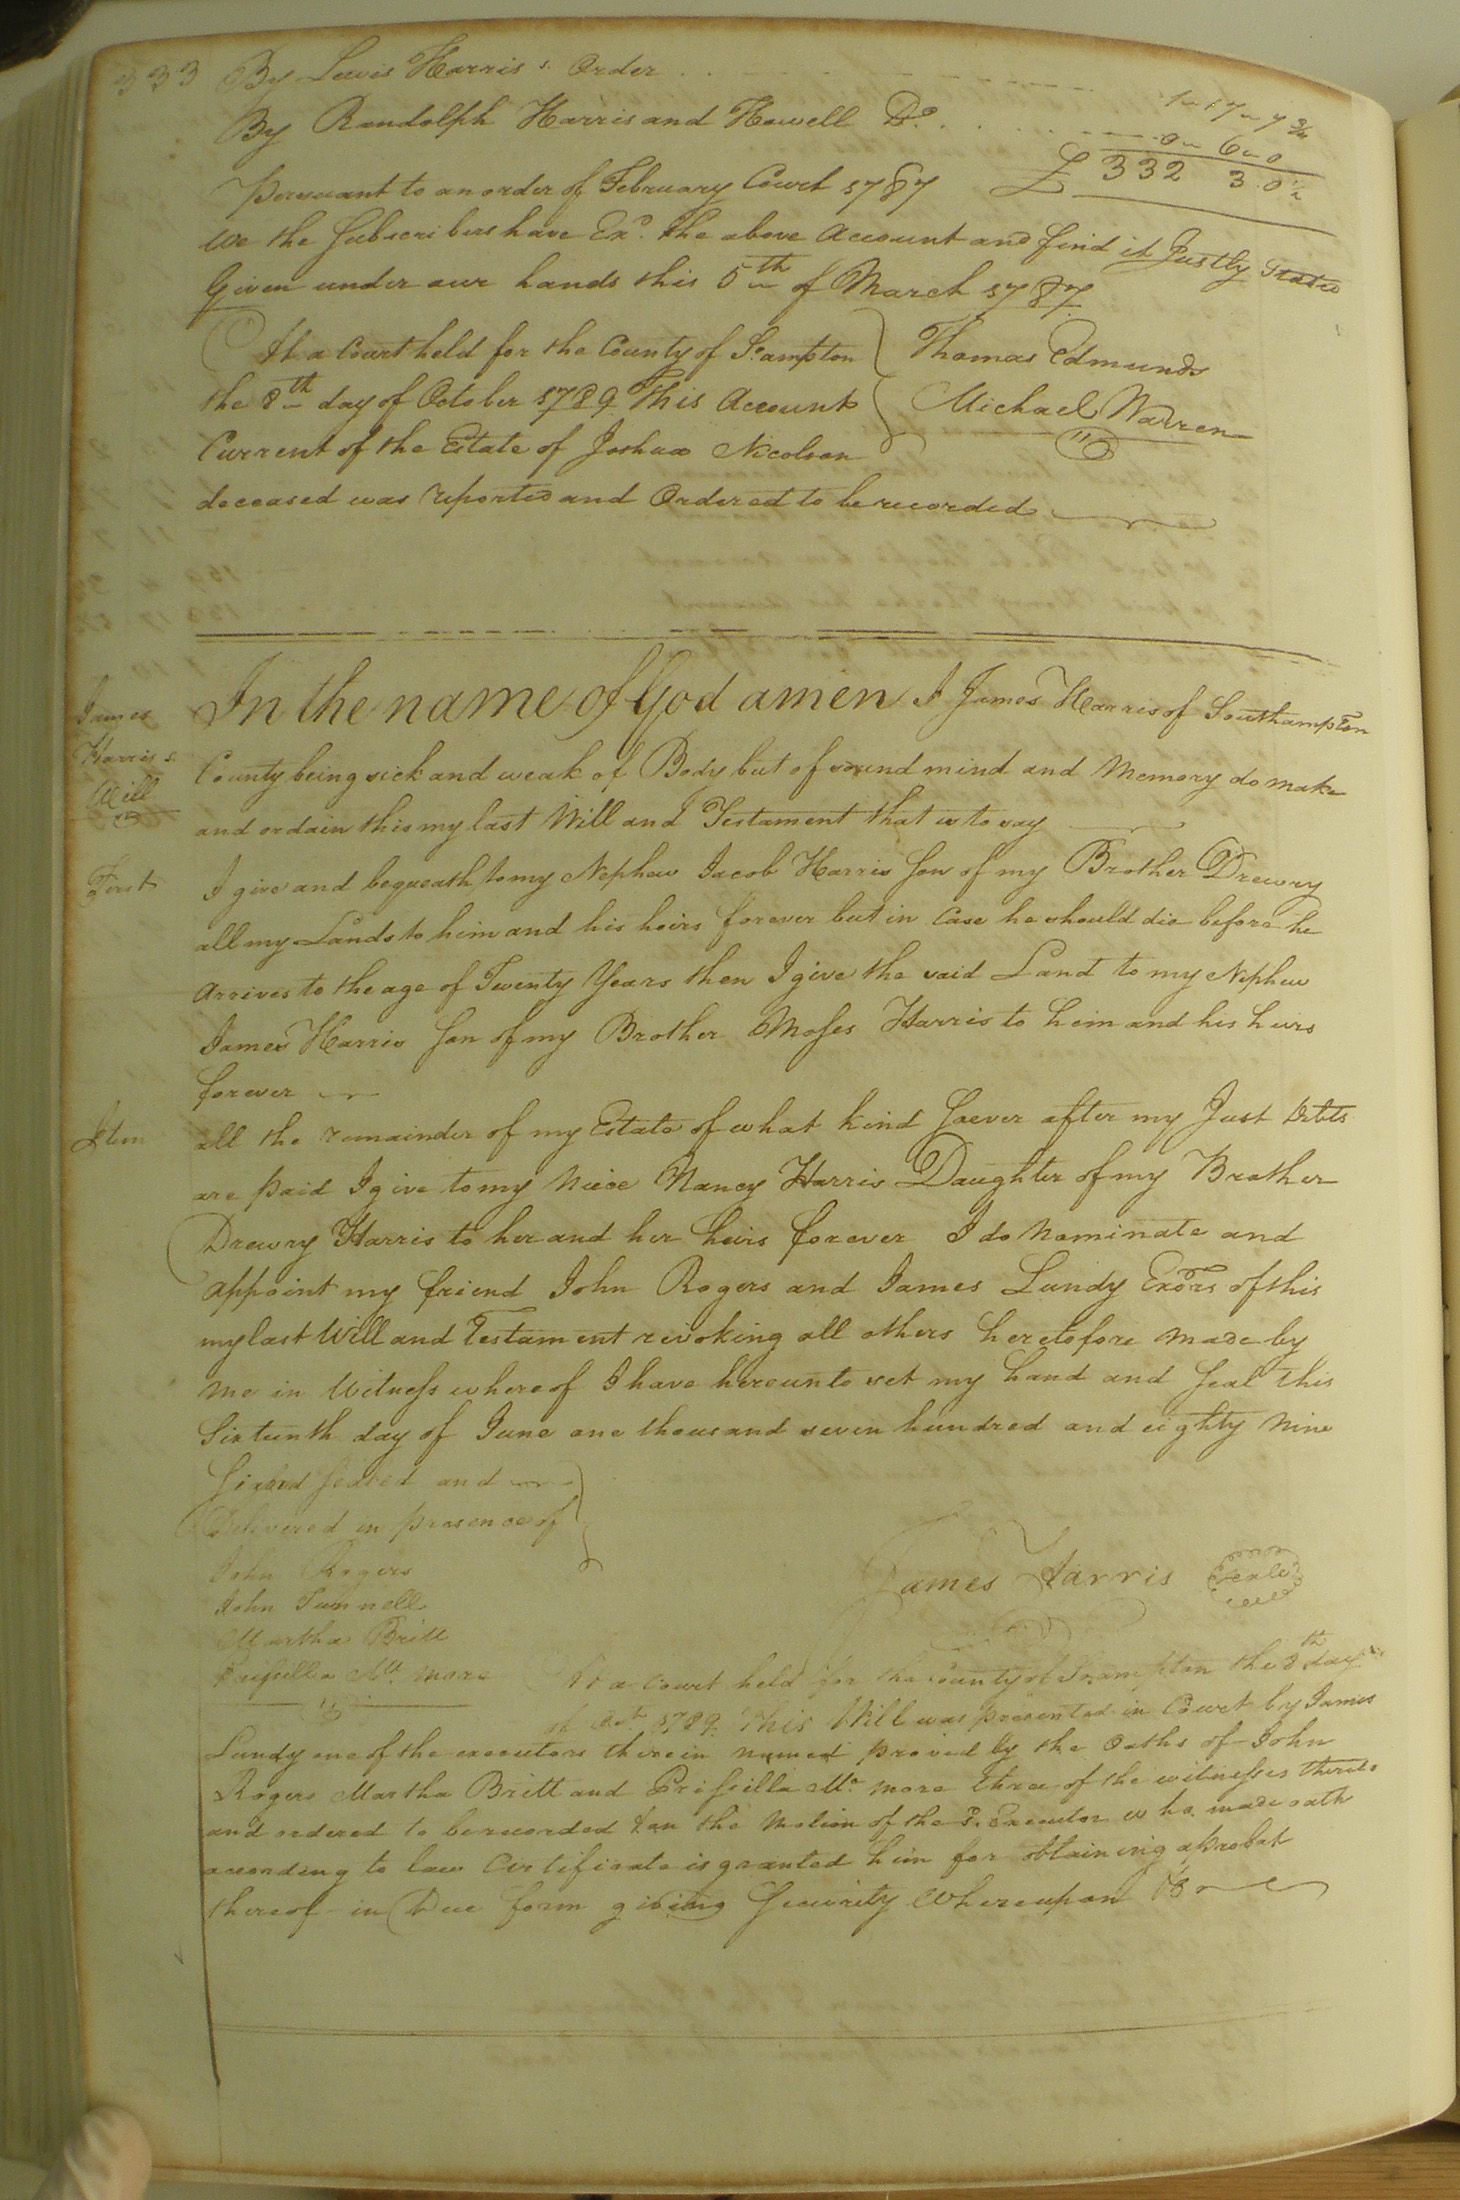 333 By Lewis Harris s. Order
By Randolph Harris and Howell Do. 1 " 17 " 7 3/4
0 " 6 " 0
Persuant to an order of February Court 1787 £ 332 3. 0 1/2
We the Subscribers have Exd. the above Account and find it Justly Stated
Given under our hands this 5th of March 1787
At a Court held for the County of So.ampton Thomas Edmunds
the 8th day of October 1789 This Account Michael Warren
Current of the Estate of Joshua Nicolson
deceased was reported and Ordered to be recorded
James Harris s. Will
In the name of God amen I James Harris of Southampton
County being sick and weak of Body but of sound mind and Memory do make
and ordain this my last Will and Testament that is to say
First I give and bequeath to my Nephew Jacob Harris Son of my Brother Drewry
all my Lands to him and his heirs forever but in Case he should die before he
Arrives to the age of Twenty Years then I give the said Land to my Nephew
James Harris Son of my Brother Moses Harris to him and his heirs
forever
Item all the remainder of my Estate of what kind Soever after my Just Debts
are paid I give to my Niece Nancy Harris Daughter of my Brother
Drewry Harris to her and her heirs forever I do Nominate and
appoint my friend John Rogers and James Lundy Exors of this
my last Will and Testament revoking all others heretofore made by
me in Witness whereof I have hereunto set my hand and Seal this
Sixteenth day of June one thousand seven hundred and eighty Nine
Signed Sealed and
Delivered in presence of
John Rogers James Harris Seal
John Tunnell
Martha Britt
Prissilla Mc. more At a Court held for the County of So.ampton the 8th day
of Oct. 1789. This Will was presented in Court by James
Lundy one of the executors therein named proved by the Oaths of John
Rogers Martha Britt and Prissilla Mc. more three of the witnesses thereto
and ordered to be recorded & on the Motion of the sd. Executor who made oath
according to law Certificate is granted him for obtaining a probat
thereof in Due form giving Security Whereupon &c